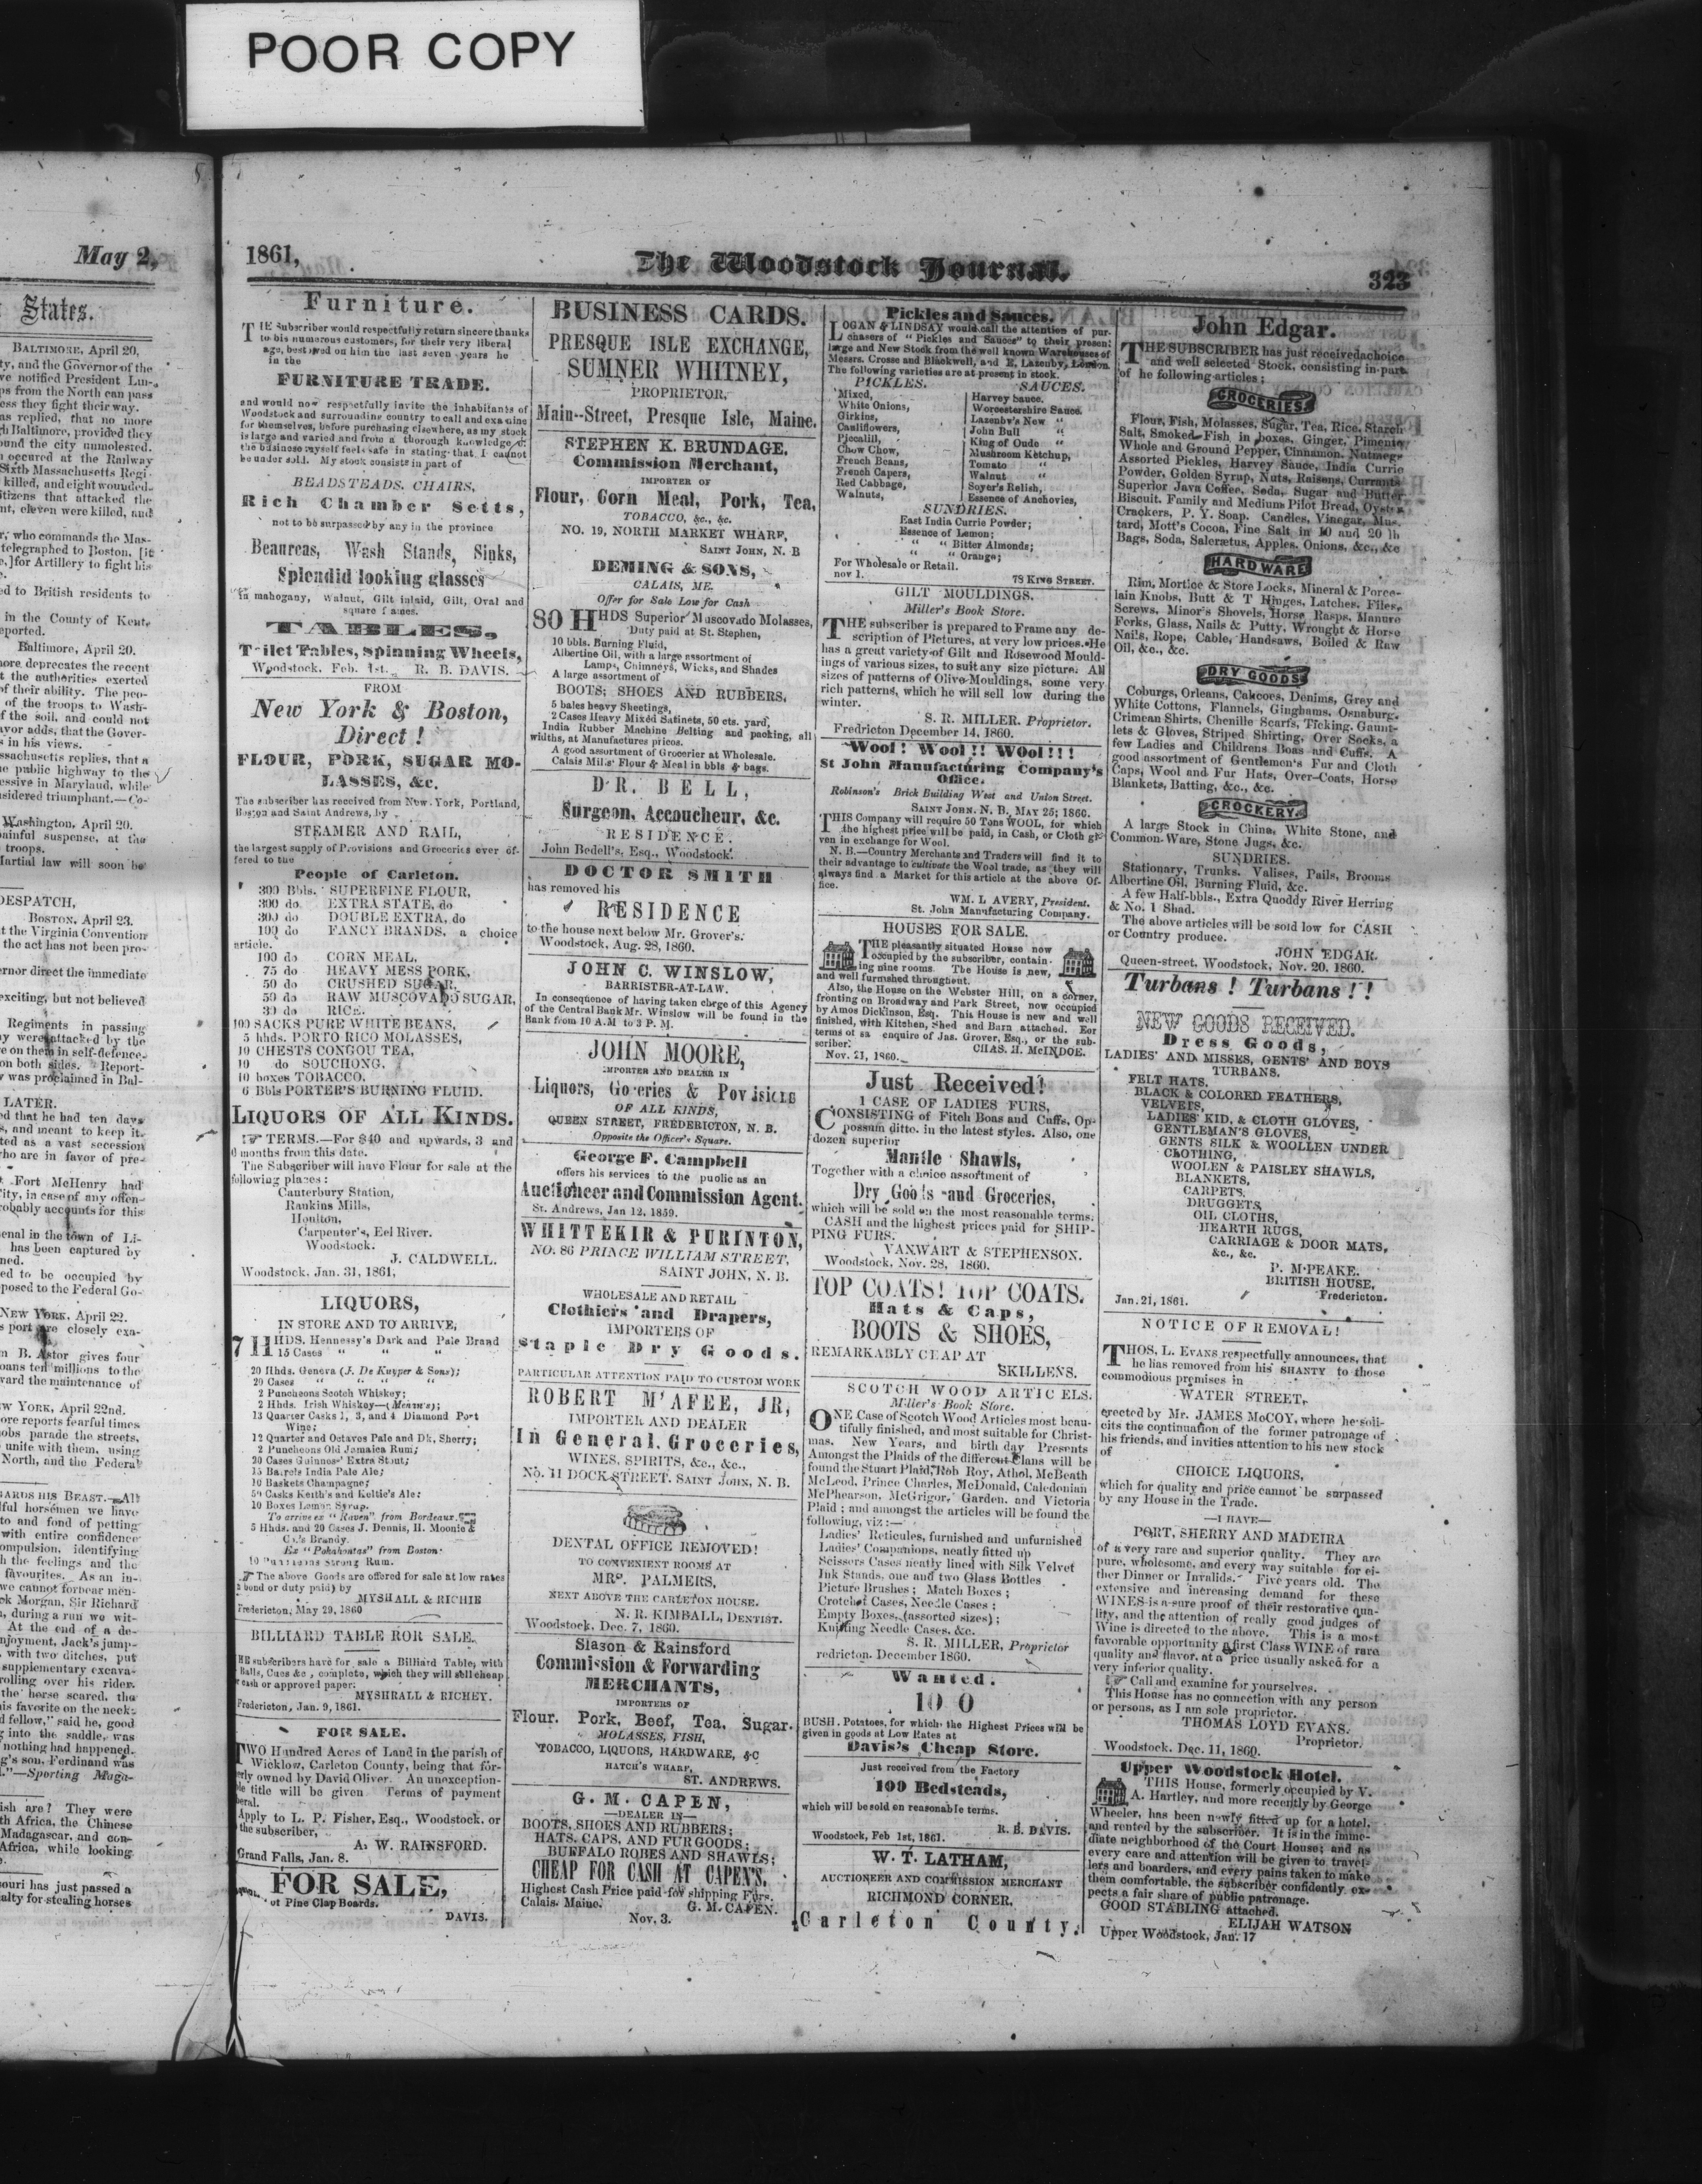 POOR COPY
May 2,
States.
BALTIMORE, April 20.
ty, and the Governor of the
ve notified President Lin-
ps from the North can pass
ess they fight their way.
as replied, that no more
gh Baltimore, provided they
ound the city unmolested.
occured at the Railway
Sixth Massachusetts Regi-
killed, and eight wounded.
itizens that attacked the
nt, eleven were killed, and
r, who commands the Mas-
telegraphed to Boston, [it
e,] for Artillery to fight his
ed to British residents to
in the County of Kent,
eported.
Baltimore, April 20.
more deprecates the recent
t the authorities exerted
of their ability. The peo-
of the troops to Wash-
f the soil, and could not
ayor adds, that the Gover-
s in his views.
ssachusetts replies, that a
ne public highway to the
essive in Maryland, while
nsidered triumphant.—Co-
Washington, April 20.
painful suspense, at the
troops.
Martial law will soon be
DESPATCH,
BOSTON, April 23.
t the Virginia Convention
the act has not been pro-
ernor direct the immediate
exciting, but not believed
Regiments in passing
ay were attacked by the
e on them in self-defence.
on both sides. Report-
w was proclaimed in Bal-
LATER.
ed that he had ten days
s, and meant to keep it.
ted as a vast secession
who are in favor of pre-
Fort McHenry had
ity, in case of any offen-
robably accounts for this
enal in the town of Li-
has been captured by
ned.
ed to be occupied by
posed to the Federal Go-
NEW YORK, April 22.
s port are closely exa-
n B. Astor gives four
oans ten millions to the
vard the maintenance of
EW YORK, April 22nd.
ore reports fearful times
obs parade the streets.
unite with them, using
North, and the Federal
GARDS HIS BEAST.—All
lful horsemen we have
to and fond of petting
with entire confidence
ompulsion, identifying
h the feelings and the
favourites. As an in-
we cannot forbear men-
ck Morgan, Sir Richard
, during a run we wit-
At the end of a de-
njoyment, Jack's jump-
, with two ditches, put
supplementary excava-
rolling over his rider.
the horse scared, the
is favorite on the neck:
d fellow," said he, good
g into the saddle, was
nothing had happened.
g's son, Ferdinand was
."—Sporting Maga-
ish are? They were
th Africa, the Chinese
Madagascar, and con-
Africa, while looking
ouri has just passed a
alty for stealing horses
1861,
The Woodstock Journal.
323
Furniture.
THE Subscriber would respectfully return sincere thanks
to his numerous customers, for their very liberal
age, bestowed on him the last seven years he
in the
FURNITURE TRADE.
and would now respectfully invite the inhabitants of
Woodstock and surrounding country to call and examine
for themselves, before purchasing elsewhere, as my stock
is large and varied and from a thorough knowledge of
the business myself feels safe in stating that I cannot
be under sold. My stock consists in part of
BEADSTEADS, CHAIRS,
Rich Chamber Setts,
not to be surpassed by any in the province
Beaureas, Wash Stands, Sinks,
Splendid looking glasses
in mahogany, Walnut, Gilt inlaid, Gilt, Oval and
square frames.
TABLES,
Toilet Tables, Spinning Wheels,
Woodstock, Feb. 1st. R. B. DAVIS.
FROM
New York & Boston,
Direct!
FLOUR, PORK, SUGAR MO-
LASSES, &c.
The subscriber has received from New-York, Portland,
Boston and Saint Andrews, by
STEAMER AND RAIL,
the largest supply of Provisions and Groceries ever of-
fered to the
People of Carleton.
300 Bbls. SUPERFINE FLOUR,
300 do EXTRA STATE, do
300 do DOUBLE EXTRA, do
100 do FANCY BRANDS, a choice
article.
100 do CORN MEAL,
75 do HEAVY MESS PORK,
50 do CRUSHED SUGAR,
50 do RAW MUSCOVADO SUGAR,
30 do RICE.
100 SACKS PURE WHITE BEANS,
5 hhds. PORTO RICO MOLASSES,
10 CHESTS CONGOU TEA,
10 do SOUCHONG,
10 boxes TOBACCO.
6 Bbls PORTER'S BURNING FLUID.
LIQUORS OF ALL KINDS.
☞ TERMS.—For $40 and upwards, 3 and
6 months from this date.
The Subscriber will have Flour for sale at the
following places:
Canterbury Station,
Rankins Mills,
Houlton,
Carpenter's, Eel River.
Woodstock.
J. CALDWELL.
Woodstock, Jan. 31, 1861,
LIQUORS,
IN STORE AND TO ARRIVE,
7 HHDS. Hennessy's Dark and Pale Brand
15 Cases " " "
20 Hhds. Geneva (J. De Kuyper & Sons);
20 Cases " " "
2 Puncheons Scotch Whiskey;
2 Hhds. Irish Whiskey—(Mehan's);
13 Quarter Casks 1, 3, and 4 Diamond Port
Wine;
12 Quarter and Octaves Pale and Dk. Sherry;
2 Puncheons Old Jamaica Rum;
20 Cases Guinness' Extra Stout;
15 Barrels India Pale Ale;
10 Baskets Champagne;
50 Casks Keith's and Keltie's Ale:
10 Boxes Lemon Syrup.
To arrive ex "Raven" from Bordeaux.
5 Hhds. and 20 Cases J. Dennis, H. Moonie &
Co.'s Brandy.
Ex "Pohahontas" from Boston:
10 Puncheons Strong Rum.
☞ The above Goods are offered for sale at low rates
bond or duty paid) by
MYSHALL & RICHIE
Fredericton, May 29, 1860
BILLIARD TABLE ROR SALE.
HE subscribers have for sale a Billiard Table, with
Balls, Cues &c, complete, which they will sell cheap
cash or approved paper.
MYSHRALL & RICHEY.
Fredericton, Jan. 9, 1861.
FOR SALE.
TWO Hundred Acres of Land in the parish of
Wicklow, Carleton County, being that for-
erly owned by David Oliver. An unexception-
ble title will be given Terms of payment
beral.
Apply to L. P. Fisher, Esq., Woodstock, or
the subscriber,
A. W. RAINSFORD.
Grand Falls, Jan. 8.
FOR SALE,
ot Pine Clap Boards.
DAVIS.
BUSINESS CARDS.
PRESQUE ISLE EXCHANGE,
SUMNER WHITNEY,
PROPRIETOR,
Main--Street, Presque Isle, Maine.
STEPHEN K. BRUNDAGE.
Commission Merchant,
IMPORTER OF
Flour, Corn Meal, Pork, Tea,
TOBACCO, &c., &c.
NO. 19, NORTH MARKET WHARF,
SAINT JOHN, N. B
DEMING & SONS,
CALAIS, ME.
Offer for Sale Low for Cash
80 HHDS Superior Muscovado Molasses,
Duty paid at St. Stephen,
10 bbls. Burning Fluid,
Albertine Oil, with a large assortment of
Lamps, Chimneys, Wicks, and Shades
A large assortment of
BOOTS; SHOES AND RUBBERS,
5 bales heavy Sheetings,
2 Cases Heavy Mixed Satinets, 50 cts. yard,
India Rubber Machine Belting and packing, all
widths, at Manufactures prices.
A good assortment of Grocerier at Wholesale.
Calais Mil.s' Flour & Meal in bbls & bags.
DR. BELL,
Surgeon, Accoucheur, &c.
RESIDENCE.
John Bedell's, Esq., Woodstock.
DOCTOR SMITH
has removed his
RESIDENCE
to the house next below Mr. Grover's.
Woodstock, Aug. 28, 1860.
JOHN C. WINSLOW,
BARRISTER-AT-LAW.
In consequence of having taken charge of this Agency
of the Central Bank Mr. Winslow will be found in the
Bank from 10 A.M to 3 P. M.
JOHN MOORE,
IMPORTER AND DEALER IN
Liquors, Groceries & Povisions
OF ALL KINDS,
QUEEN STREET, FREDERICTON, N. B.
Opposite the Officer's Square.
George F. Campbell
offers his services to the public as an
Auctioneer and Commission Agent.
St. Andrews, Jan 12, 1859.
WHITTEKIR & PURINTON,
NO. 86 PRINCE WILLIAM STREET,
SAINT JOHN, N. B.
WHOLESALE AND RETAIL
Clothiers and Drapers,
IMPORTERS OF
Staple Dry Goods.
PARTICULAR ATTENTION PAID TO CUSTOM WORK
ROBERT M'AFEE, JR,
IMPORTER AND DEALER
In General Groceries,
WINES, SPIRITS, &c., &c.,
No. 11 DOCK STREET, SAINT JOHN, N. B.
DENTAL OFFICE REMOVED!
TO CONVENIENT ROOMS AT
MRS. PALMERS,
NEXT ABOVE THE CARLETON HOUSE.
N. R. KIMBALL, DENTIST.
Woodstock, Dec. 7, 1860.
Slason & Rainsford
Commission & Forwarding
MERCHANTS,
IMPORTERS OF
Flour. Pork, Beef, Tea, Sugar.
MOLASSES, FISH,
TOBACCO, LIQUORS, HARDWARE, &C
HATCH'S WHARF,
ST. ANDREWS.
G. M. CAPEN,
—DEALER IN—
BOOTS, SHOES AND RUBBERS;
HATS, CAPS, AND FUR GOODS;
BUFFALO ROBES AND SHAWLS;
CHEAP FOR CASH AT CAPEN'S.
Highest Cash Price paid for shipping Furs.
Calais, Maine. G. M. CAPEN.
Nov. 3.
Pickles and Sauces.
LOGAN & LINDSAY would call the attention of pur-
chasers of "Pickles and Sauces" to their present
large and New Stock from the well known Warehouses of
Messrs. Crosse and Blackwell, and E. Lazenby, London
The following varieties are at present in stock.
PICKLES. SAUCES.
Mixed, Harvey Sauce.
White Onions, Worcestershire Sauce.
Girkins, Lazenby's New "
Cauliflowers, John Bull "
Piccalili, King of Oude "
Chow Chow, Mushroom Ketchup,
French Beans, Tomato "
French Capers, Walnut "
Red Cabbage, Soyer's Relish,
Walnuts, Essence of Anchovies,
SUNDRIES.
East India Currie Powder;
Essence of Lemon;
" " Bitter Almonds;
" " Orange;
For Wholesale or Retail.
nov 1. 78 KING STREET.
GILT MOULDINGS.
Miller's Book Store.
THE subscriber is prepared to Frame any de-
scription of Pictures, at very low prices. He
has a great variety of Gilt and Rosewood Mould-
ings of various sizes, to suit any size picture. All
sizes of patterns of Olive Mouldings, some very
rich patterns, which he will sell low during the
winter.
S. R. MILLER, Proprietor.
Fredricton December 14, 1860.
Wool! Wool!! WOol!!!
St John Manufacturing Company's
Office.
Robinson's Brick Building West and Union Street.
SAINT JOHN, N. B, MAY 25; 1860.
THIS Company will require 50 Tons WOOL, for which
the highest price will be paid, in Cash, or Cloth gi-
ven in exchange for Wool.
N. B.—Country Merchants and Traders will find it to
their advantage to cultivate the Wool trade, as they will
always find a Market for this article at the above Of-
fice.
WM. L AVERY, President.
St. John Manufacturing Company.
HOUSES FOR SALE.
THE pleasantly situated House now
occupied by the subscriber, contain-
ing nine rooms. The House is new,
and well furnished throughout.
Also, the House on the Webster Hill, on a corner,
fronting on Broadway and Park Street, now occupied
by Amos Dickinson, Esq. This House is new and well
finished, with Kitchen, Shed and Barn attached. For
terms of sa enquire of Jas. Grover, Esq., or the sub-
scriber.
CHAS. H. McINDOE.
Nov. 21, 1860.
Just Received!
1 CASE OF LADIES FURS,
CONSISTING of Fitch Boas and Cuffs, Op-
possum ditto. in the latest styles. Also, one
dozen superior
Mantle Shawls,
Together with a choice assortment of
Dry Goods and Groceries,
which will be sold on the most reasonable terms.
CASH and the highest prices paid for SHIP-
PING FURS.
VANWART & STEPHENSON.
Woodstock, Nov. 28, 1860.
TOP COATS! TOP COATS.
Hats & Caps,
BOOTS & SHOES,
REMARKABLY CHEAP AT
SKILLENS.
SCOTCH WOOD ARTIC ELS.
Miller's Book Store.
ONE Case of Scotch Wood Articles most beau-
tifully finished, and most suitable for Christ-
mas, New Years, and birth day Presents
Amongst the Plaids of the different Clans will be
found the Stuart Plaid, Rob Roy, Athol, McBeath
McLeod, Prince Charles, McDonald, Caledonian
McPhearson, McGrigor, Garden, and Victoria
Plaid; and amongst the articles will be found the
following, viz:—
Ladies' Reticules, furnished and unfurnished
Ladies' Companions, neatly fitted up
Scissors Cases neatly lined with Silk Velvet
Ink Stands, one and two Glass Bottles
Picture Brushes; Match Boxes;
Crotchet Cases, Needle Cases;
Empty Boxes, (assorted sizes);
Knitting Needle Cases, &c.
S. R. MILLER, Proprietor
redricton, December 1860.
Wanted.
100
BUSH. Potatoes, for which the Highest Prices will be
given in goods at Low Rates at
Davis's Cheap Store.
Just received from the Factory
100 Bedsteads,
which will be sold on reasonable terms.
R. B. DAVIS.
Woodstock, Feb 1st, 1861.
W. T. LATHAM,
AUCTIONEER AND COMMISSION MERCHANT
RICHMOND CORNER,
Carleton County.
John Edgar.
THE SUBSCRIBER has just received a choice
and well selected Stock, consisting in part
of he following articles;
GROCERIES
Flour, Fish, Molasses, Sugar, Tea, Rice, Starch
Salt, Smoked Fish in boxes, Ginger, Pimento
Whole and Ground Pepper, Cinnamon, Nutmegs
Assorted Pickles, Harvey Sauce, India Currie
Powder, Golden Syrup, Nuts, Raisens, Currants
Superior Java Coffee, Soda, Sugar and Butter
Biscuit, Family and Medium Pilot Bread, Oyster
Crackers, P. Y. Soap, Candles, Vinegar, Mus-
tard, Mott's Cocoa, Fine Salt in 10 and 20 lb
Bags, Soda, Salerætus, Apples, Onions, &c., &c
HARDWARE
Rim, Mortice & Store Locks, Mineral & Porce-
lain Knobs, Butt & T Hinges, Latches, Files,
Screws, Minor's Shovels, Horse Rasps, Manure
Forks, Glass, Nails & Putty, Wrought & Horse
Nails, Rope, Cable, Handsaws, Boiled & Raw
Oil, &c., &c.
DRY GOODS
Coburgs, Orleans, Calicoes, Denims, Grey and
White Cottons, Flannels, Ginghams, Osnaburg,
Crimean Shirts, Chenille Scarfs, Ticking, Gaunt-
lets & Gloves, Striped Shirting, Over Socks, a
few Ladies and Childrens Boas and Cuffs. A
good assortment of Gentlemen's Fur and Cloth
Caps, Wool and Fur Hats, Over-Coats, Horse
Blankets, Batting, &c., &c.
CROCKERY
A large Stock in China, White Stone, and
Common Ware, Stone Jugs, &c.
SUNDRIES.
Stationary, Trunks, Valises, Pails, Brooms
Albertine Oil, Burning Fluid, &c.
A few Half-bbls., Extra Quoddy River Herring
& No. 1 Shad.
The above articles will be sold low for CASH
or Country produce.
JOHN EDGAR.
Queen-street, Woodstock, Nov. 20, 1860.
Turbans! Turbans!!
NEW GOODS RECEIVED.
Dress Goods,
LADIES' AND MISSES, GENTS' AND BOYS
TURBANS.
FELT HATS,
BLACK & COLORED FEATHERS,
VELVETS,
LADIES' KID, & CLOTH GLOVES,
GENTLEMAN'S GLOVES,
GENTS SILK & WOOLLEN UNDER
CLOTHING,
WOOLEN & PAISLEY SHAWLS,
BLANKETS,
CARPETS,
DRUGGETS,
OIL CLOTHS,
HEARTH RUGS,
CARRIAGE & DOOR MATS,
&c., &c.
P. M'PEAKE.
BRITISH HOUSE,
Fredericton.
Jan. 21, 1861.
NOTICE OF REMOVAL!
THOS. L. EVANS respectfully announces, that
he has removed from his SHANTY to those
commodious premises in
WATER STREET,
erected by Mr. JAMES McCOY, where he soli-
cits the continuation of the former patronage of
his friends, and invities attention to his new stock
of
CHOICE LIQUORS,
which for quality and price cannot be surpassed
by any House in the Trade.
—I HAVE—
PORT, SHERRY AND MADEIRA
of a very rare and superior quality. They are
pure, wholesome, and every way suitable for ei-
ther Dinner or Invalids. Five years old. The
extensive and increasing demand for these
WINES is a sure proof of their restorative qua-
lity, and the attention of really good judges of
Wine is directed to the above. This is a most
favorable opportunity a first Class WINE of rare
quality and flavor, at a price usually asked for a
very inferior quality.
☞ Call and examine for yourselves.
This House has no connection with any person
or persons, as I am sole proprietor.
THOMAS LOYD EVANS.
Proprietor.
Woodstock, Dec. 11, 1860.
Upper Woodstock Hotel.
THIS House, formerly occupied by V.
A. Hartley, and more recently by George
Wheeler, has been newly fitted up for a hotel,
and rented by the subscriber. It is in the imme-
diate neighborhood of the Court House; and as
every care and attention will be given to travel-
lers and boarders, and every pains taken to make
them comfortable, the subscriber confidently ex-
pects a fair share of public patronage.
GOOD STABLING attached.
ELIJAH WATSON
Upper Woodstock, Jan. 17